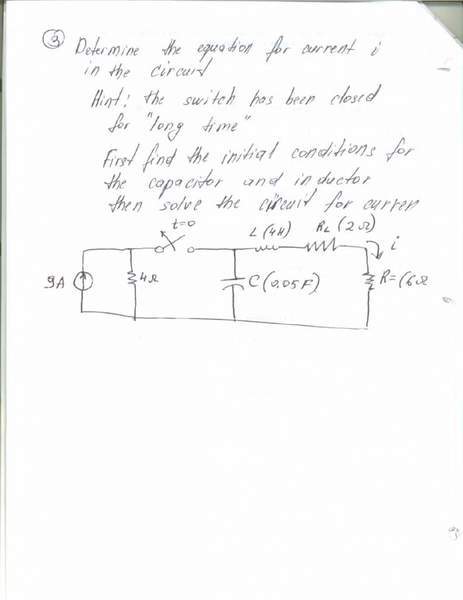 3 Determine the equation for current i
in the circuit
Hint: the switch has been closed
for "long time"
First find the initial conditions for
the capacitor and inductor
then solve the circuit for curren
t=0
L (4H) RL (2Ω)
i
9A 4Ω C (0.05F) R=(6Ω